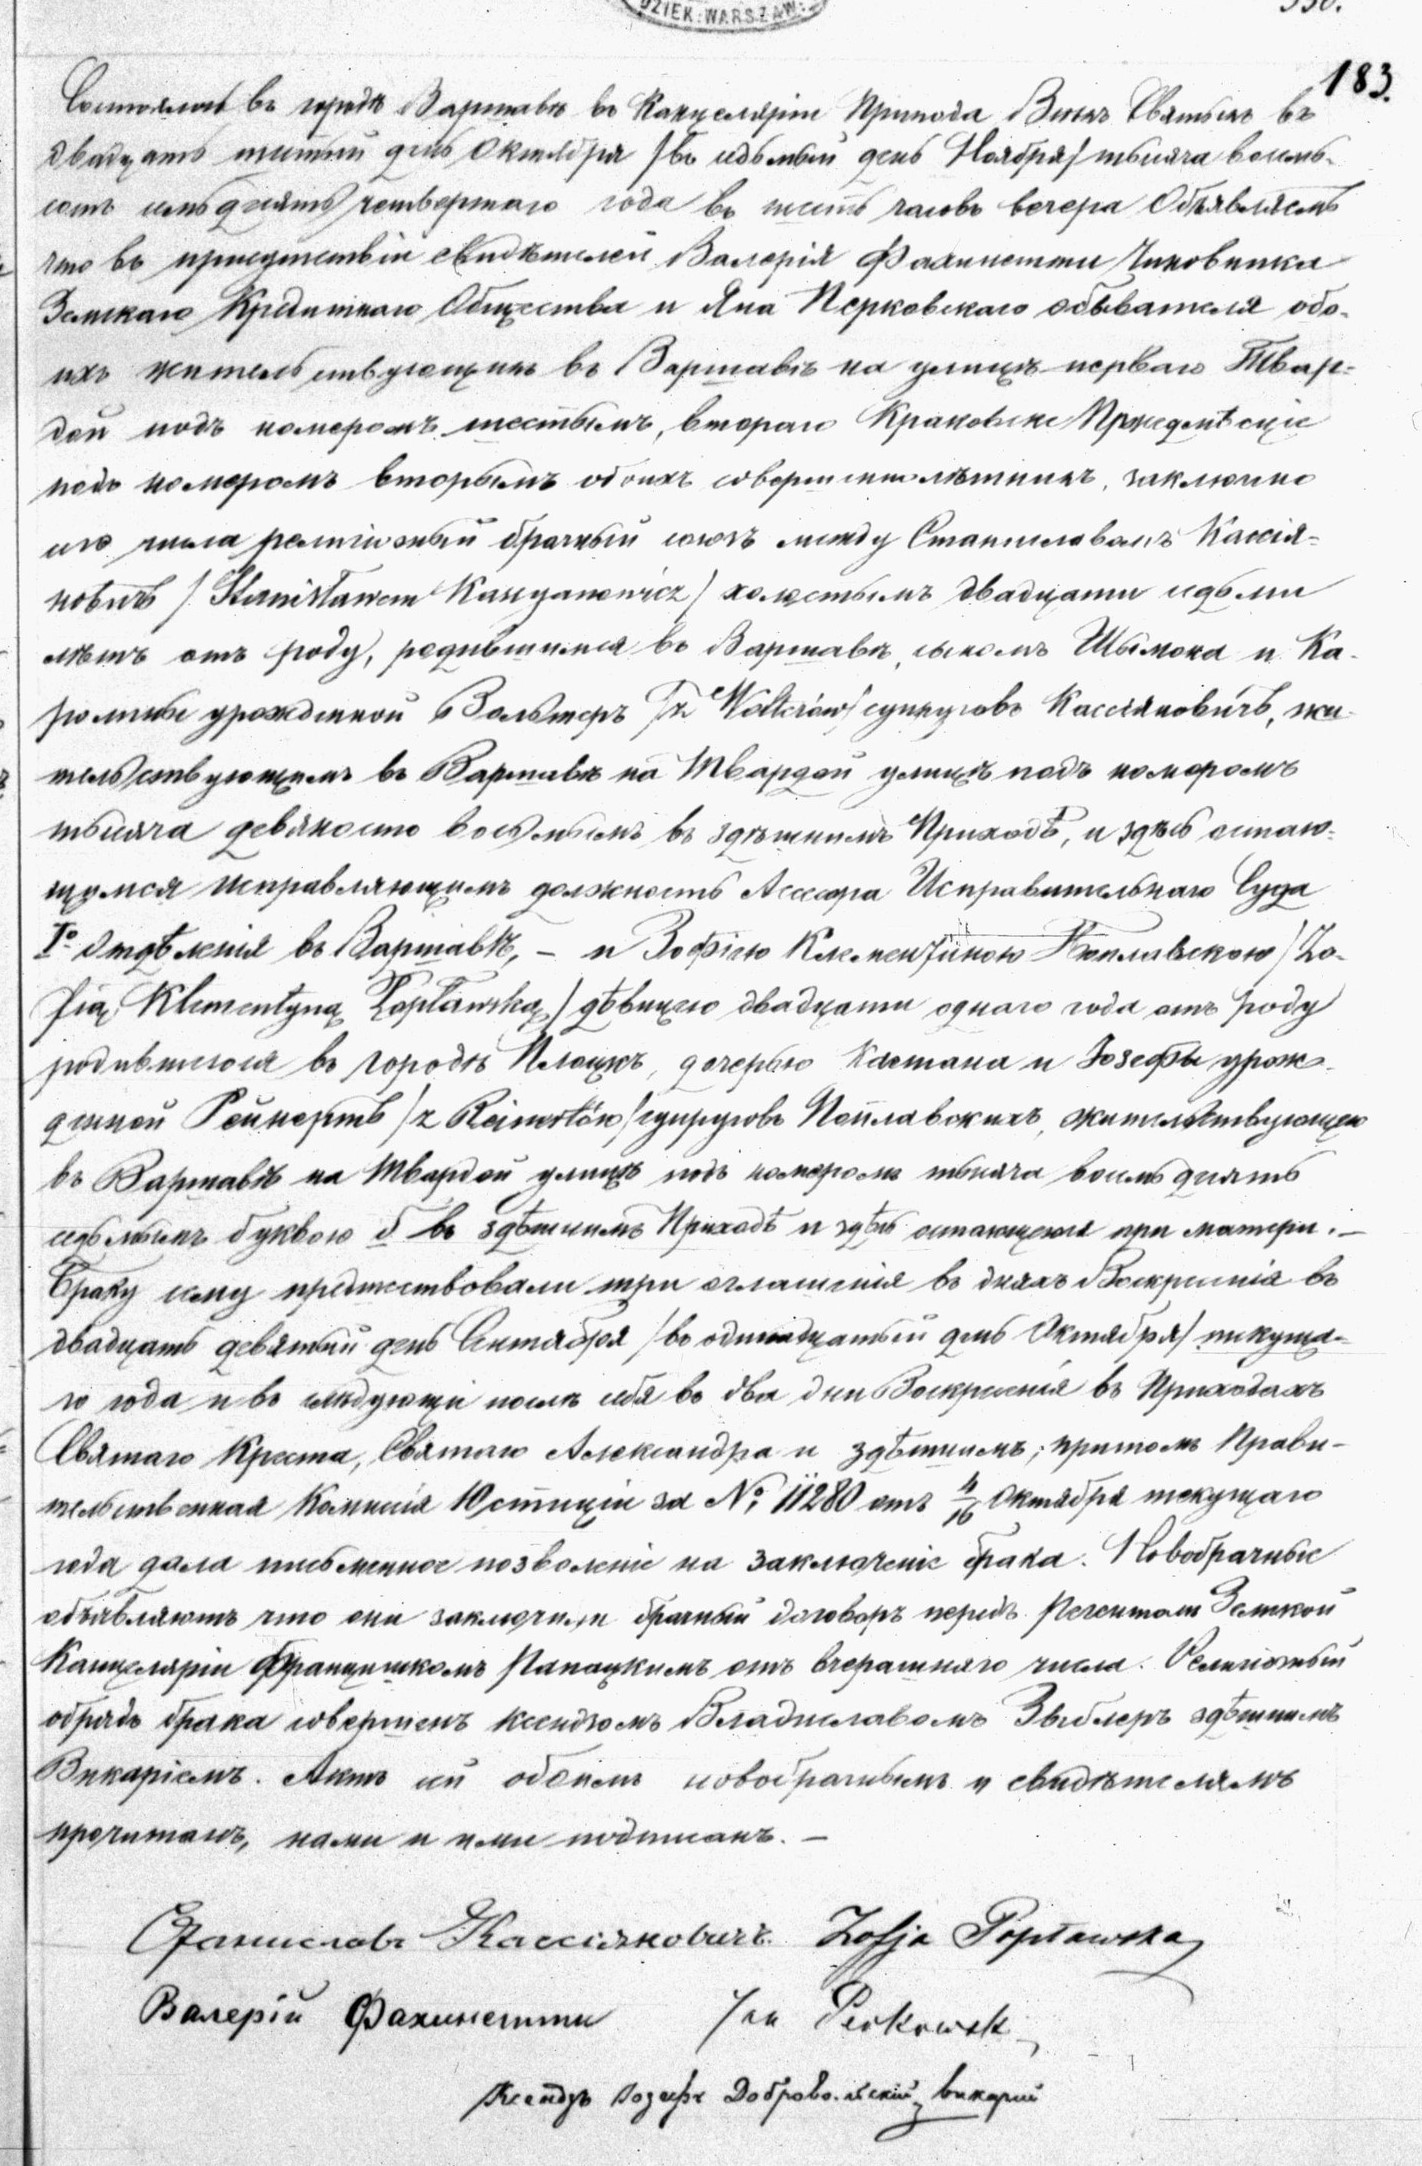 DZIEK: WARSZAW:
330.
183.
Состоялось въ городѣ Варшавѣ въ Канцеляріи Прихода Всѣхъ Святыхъ въ
двадцать шестый день Октября /въ седьмый день Ноября/ тысяча восемь-
сотъ семьдесятъ четвертаго года въ шесть часовъ вечера Объявляемъ
что въ присутствіи свидѣтелей Валерія Фахинетти Чиновника
Земскаго Кредитнаго Общества и Яна Перковскаго обывателя обо-
ихъ жительствующихъ въ Варшавѣ на улицѣ перваго Твар-
дой подъ номеромъ шестымъ, втораго Краковске Пржедмѣсціе
подъ номеромъ вторымъ обоихъ совершеннолѣтнихъ, заключно
сего числа религіозный брачный союзъ между Станиславомъ Кассія-
новичъ /Stanisławem Kassyanowicz/ холостымъ двадцати седьми
лѣтъ отъ роду, родившимся въ Варшавѣ, сыномъ Шымона и Ка-
ролины урожденной Вольтеръ /z Wolterów/ супруговъ Кассіяновичъ, жи-
тельствующимъ въ Варшавѣ на Твардой улицѣ подъ номеромъ
тысяча девяносто восьмымъ въ здѣшнимъ Приходѣ, и здѣсь остаю-
щимся исправляющимъ должность Ассесора Исправительнаго Суда
Iº Отдѣленія въ Варшавѣ, – и Зофіею Клементиною Поплавскою /Zo-
fią Klementyną Popławską/ дѣвицею двадцати одного года отъ роду
родившеюся въ городѣ Плоцкѣ, дочерью Каетана и Юзефы урож-
денной Рейнертъ /z Reinertów/ супруговъ Поплавскихъ, жительствующею
въ Варшавѣ на Твардой улицѣ подъ номеромъ тысяча восемьдесятъ
седьмымъ буквою б въ здѣшнимъ Приходѣ и здѣсь остающеюся при матери. –
Браку сему предшествовали три оглашенія въ дняхъ Воскресенія въ
двадцать девятый день Сентября /въ одинадцатый день Октября/ текуща-
го года и въ слѣдующіе послѣ себя въ два дни Воскресенія въ Приходахъ
Святаго Креста, Святаго Александра и здѣшнимъ; притомъ Прави-
тельственная Комисія Юстиціи за №: 11280 отъ 4/16 Октября текущаго
года дала письменное позволеніе на заключеніе брака. Новобрачные
объявляютъ что они заключили брачный договоръ передъ Регентомъ Земской
Канцеляріи Францишкомъ Напацкимъ отъ вчерашняго числа. Религіозный
обрядъ брака совершенъ ксендзомъ Владиславомъ Зыблеръ здѣшнимъ
Викаріемъ. Актъ сей обоимъ новобрачнымъ и свидѣтелямъ
прочитанъ, нами и ими подписанъ. –
Станиславъ Кассіяновичъ Zofja Popławska
Валерій Фахинетти Jan Perkowski
Ксендзъ Іозефъ Добровольскій викарій